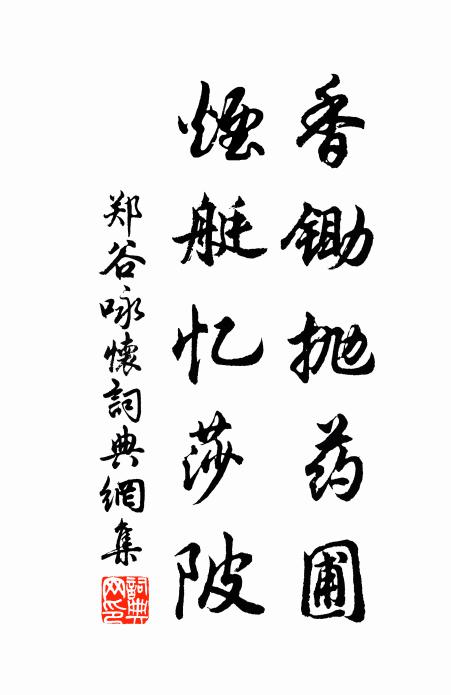 香锄抛药圃
烟艇忆莎陂
郑谷咏懷詞典網集
詞典网印